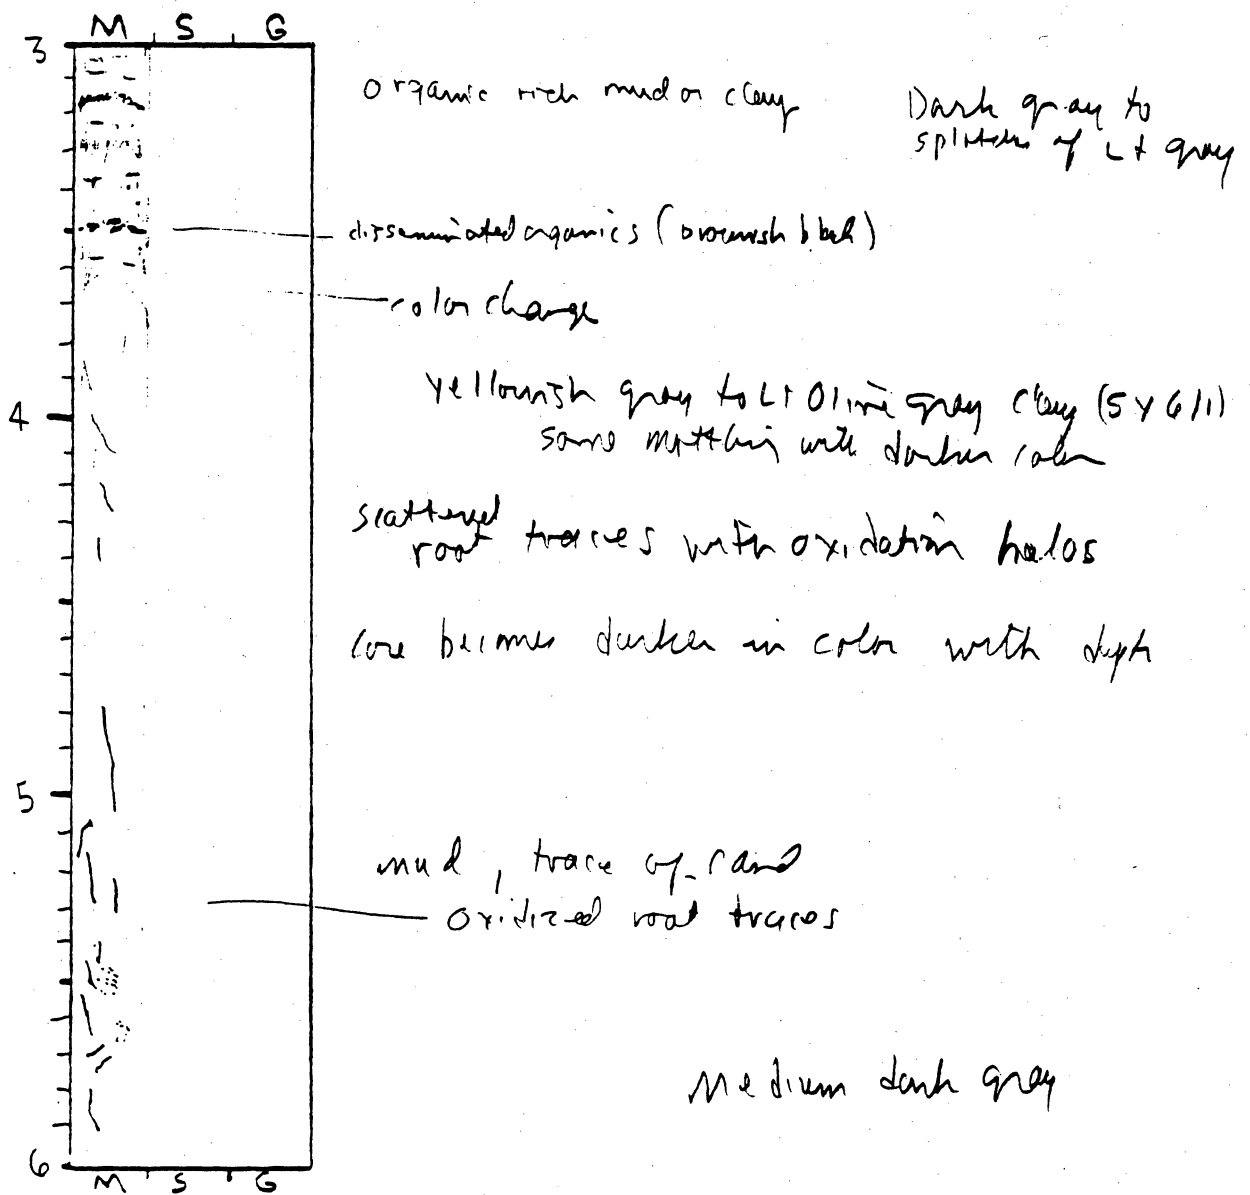 M S G
3
organic rich mud or clay
Dark gray to
splotches of Lt gray
disseminated organics (brownish black)
color change
yellowish gray to Lt Olive gray clay (5Y6/1)
4
some mottling with darker color
scattered
root traces with oxidation halos
core becomes darker in color with depth
5
mud, trace of sand
oxidized root traces
Medium dark gray
6
M S G